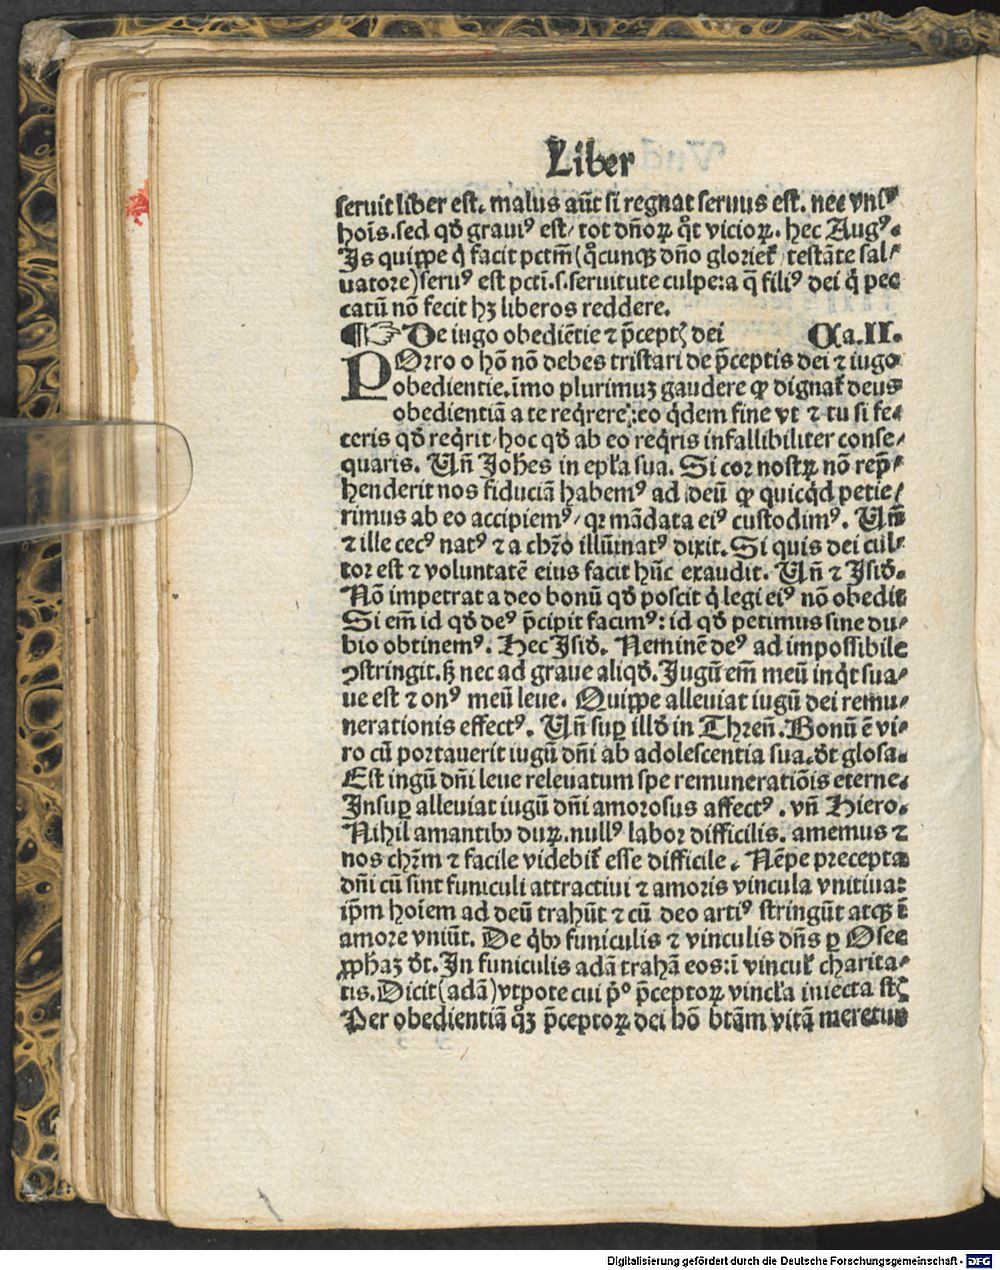 Liber
seruit liber est. malus aūt si regnat seruus est. nec vni⸗
hoīs. sed qđ graui⁹ est / tot dñoꝝ qͦt vicioꝝ. hec Aug⁹.
Is quippe q̇ facit pctm̄ (qͦcunqꝫ dño glorieť / testāte sal⸗
uatore) seru⁹ est pcti. s. seruitute culpe: a q̄ fili⁹ dei q̇ pec
catū nō fecit hꝫ liberos reddere.
¶ ☞ De iugo obediētie ⁊ p̄ceptꝭ dei Ca. II.
POrro o hō nō debes tristari de p̄ceptis dei ⁊ iugo
obedientie. īmo plurimuꝫ gaudere ꝙ dignať deus
obedientiā a te reqͥrere: eo qͥdem fine vt ⁊ tu si fe⸗
ceris qđ reqͥrit / hoc qđ ab eo reqͥris infallibiliter conse⸗
quaris. Vñ Johēs in epľa sua. Si cor nostꝝ nō rep̄⸗
henderit nos fiduciā habem⁹ ad deū ꝙ quicqͥd petie⸗
rimus ab eo accipiem⁹ / qꝛ mādata ei⁹ custodim⁹. Vñ
⁊ ille cec⁹ nat⁹ ⁊ a chr̄o illūinat⁹ dixit. Si quis dei cul⸗
tor est ⁊ voluntatē eius facit hūc exaudit. Vñ ⁊ Isid.
Nō impetrat a deo bonū qđ poscit q̇ legi ei⁹ nō obedit
Si em̄ id qđ de⁹ p̄cipit facim⁹: id qđ petimus sine du⸗
bio obtinem⁹. Hec Isid. Neminē de⁹ ad impossibile
ꝯstringit. sꝫ nec ad graue aliqđ. Jugū em̄ meū inqͥt sua⸗
ue est ⁊ on⁹ meū leue. Quippe alleuiat iugū dei remu⸗
nerationis effect⁹. Vñ suꝑ illđ in Threñ. Bonū ē vi⸗
ro cū portauerit iugū dñi ab adolescentia sua. đt glosa.
Est iugū dñi leue releuatum spe remuneratiōis eterne.
Insuꝑ alleuiat iugū dñi amorosus affect⁹. vñ Hiero.
Nihil amantibꝰ duꝝ. null⁹ labor difficilis. amemus ⁊
nos chr̄m ⁊ facile videbiť esse difficile. Nēpe precepta
dñi cū sint funiculi attractiui ⁊ amoris vincula vnitiua:
ip̄m hoīem ad deū trahūt ⁊ cū deo arti⁹ stringūt atqꝫ ī
amore vniūt. De qͥbꝰ funiculis ⁊ vinculis dñs ꝑ Osee
ꝓphaꝫ đt. In funiculis adā trahā eos: ī vincuľ charita⸗
tis. Dicit (adā) vtpote cui p̄º p̄ceptoꝝ vincľa iniecta stꝭ
Per obedientiā qͦꝫ p̄ceptoꝝ dei hō btām vitā meretur
Digitalisierung gefördert durch die Deutsche Forschungsgemeinschaft - DFG